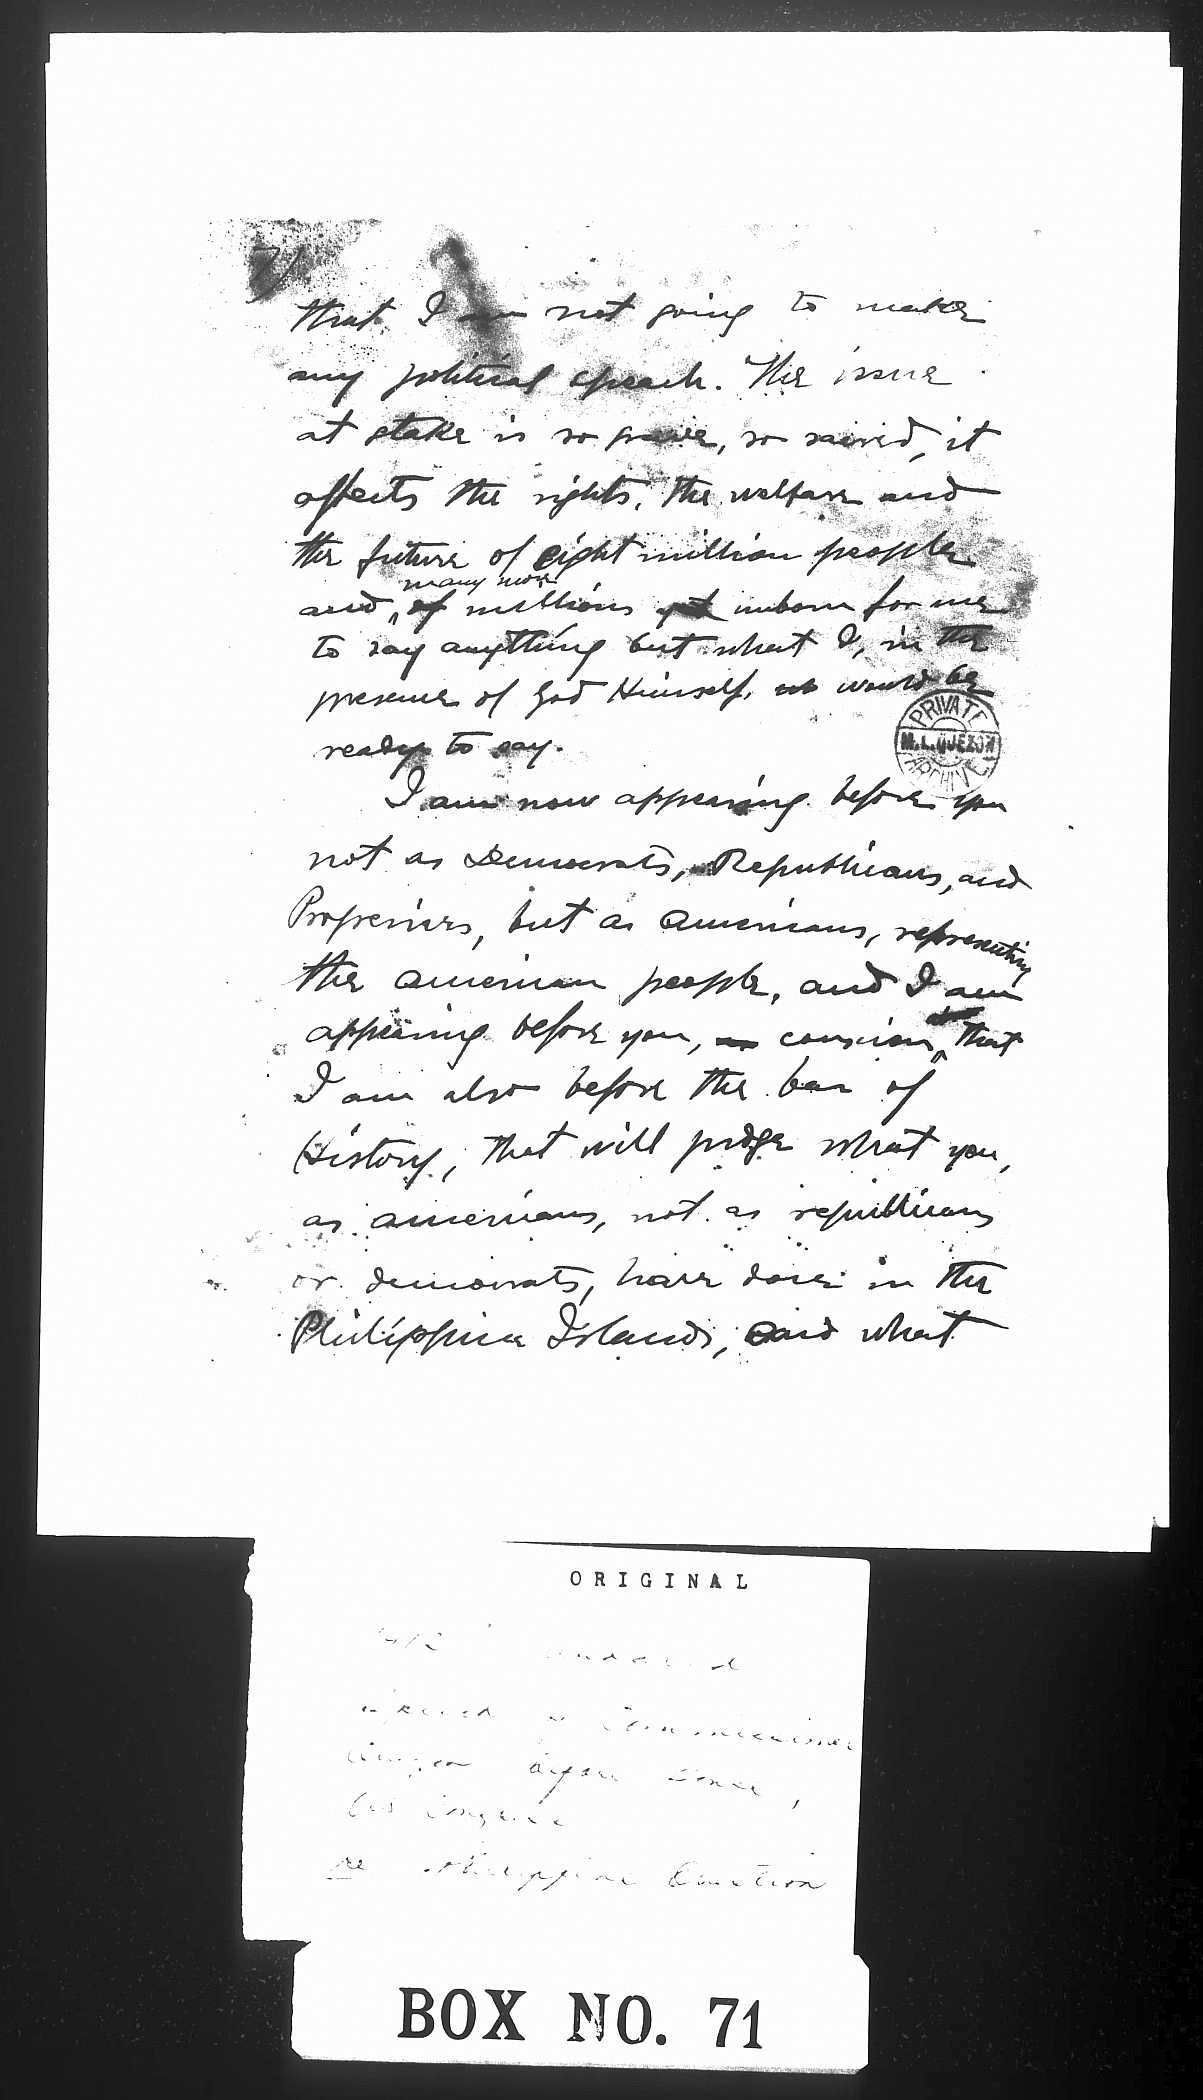 that I am not going to make
any political speach. The issue
at stake is so grave, so sacred, it
affects the rights, the welfare and
the future of eight million people
many more
and of millions yet unborn for me
to say anything but what I, in the
presence of God Himself, would be
ready to say.
PRIVATE
M.L. QUEZON
ARCHIVE
I am now appearing before you
not as Democrats, Republicans, and
Progresives, but as Americans, representing
the American people, and I am
appearing before you, consious, that
I am also before the bar of
History, that will judge what you,
as Americans, not as republicans
or democrats, have done in the
Philippine Islands, and what
ORIGINAL
undated
Speech of Commissioner
Quezon before House,
US Congress
re Philippine Question
BOX NO. 71